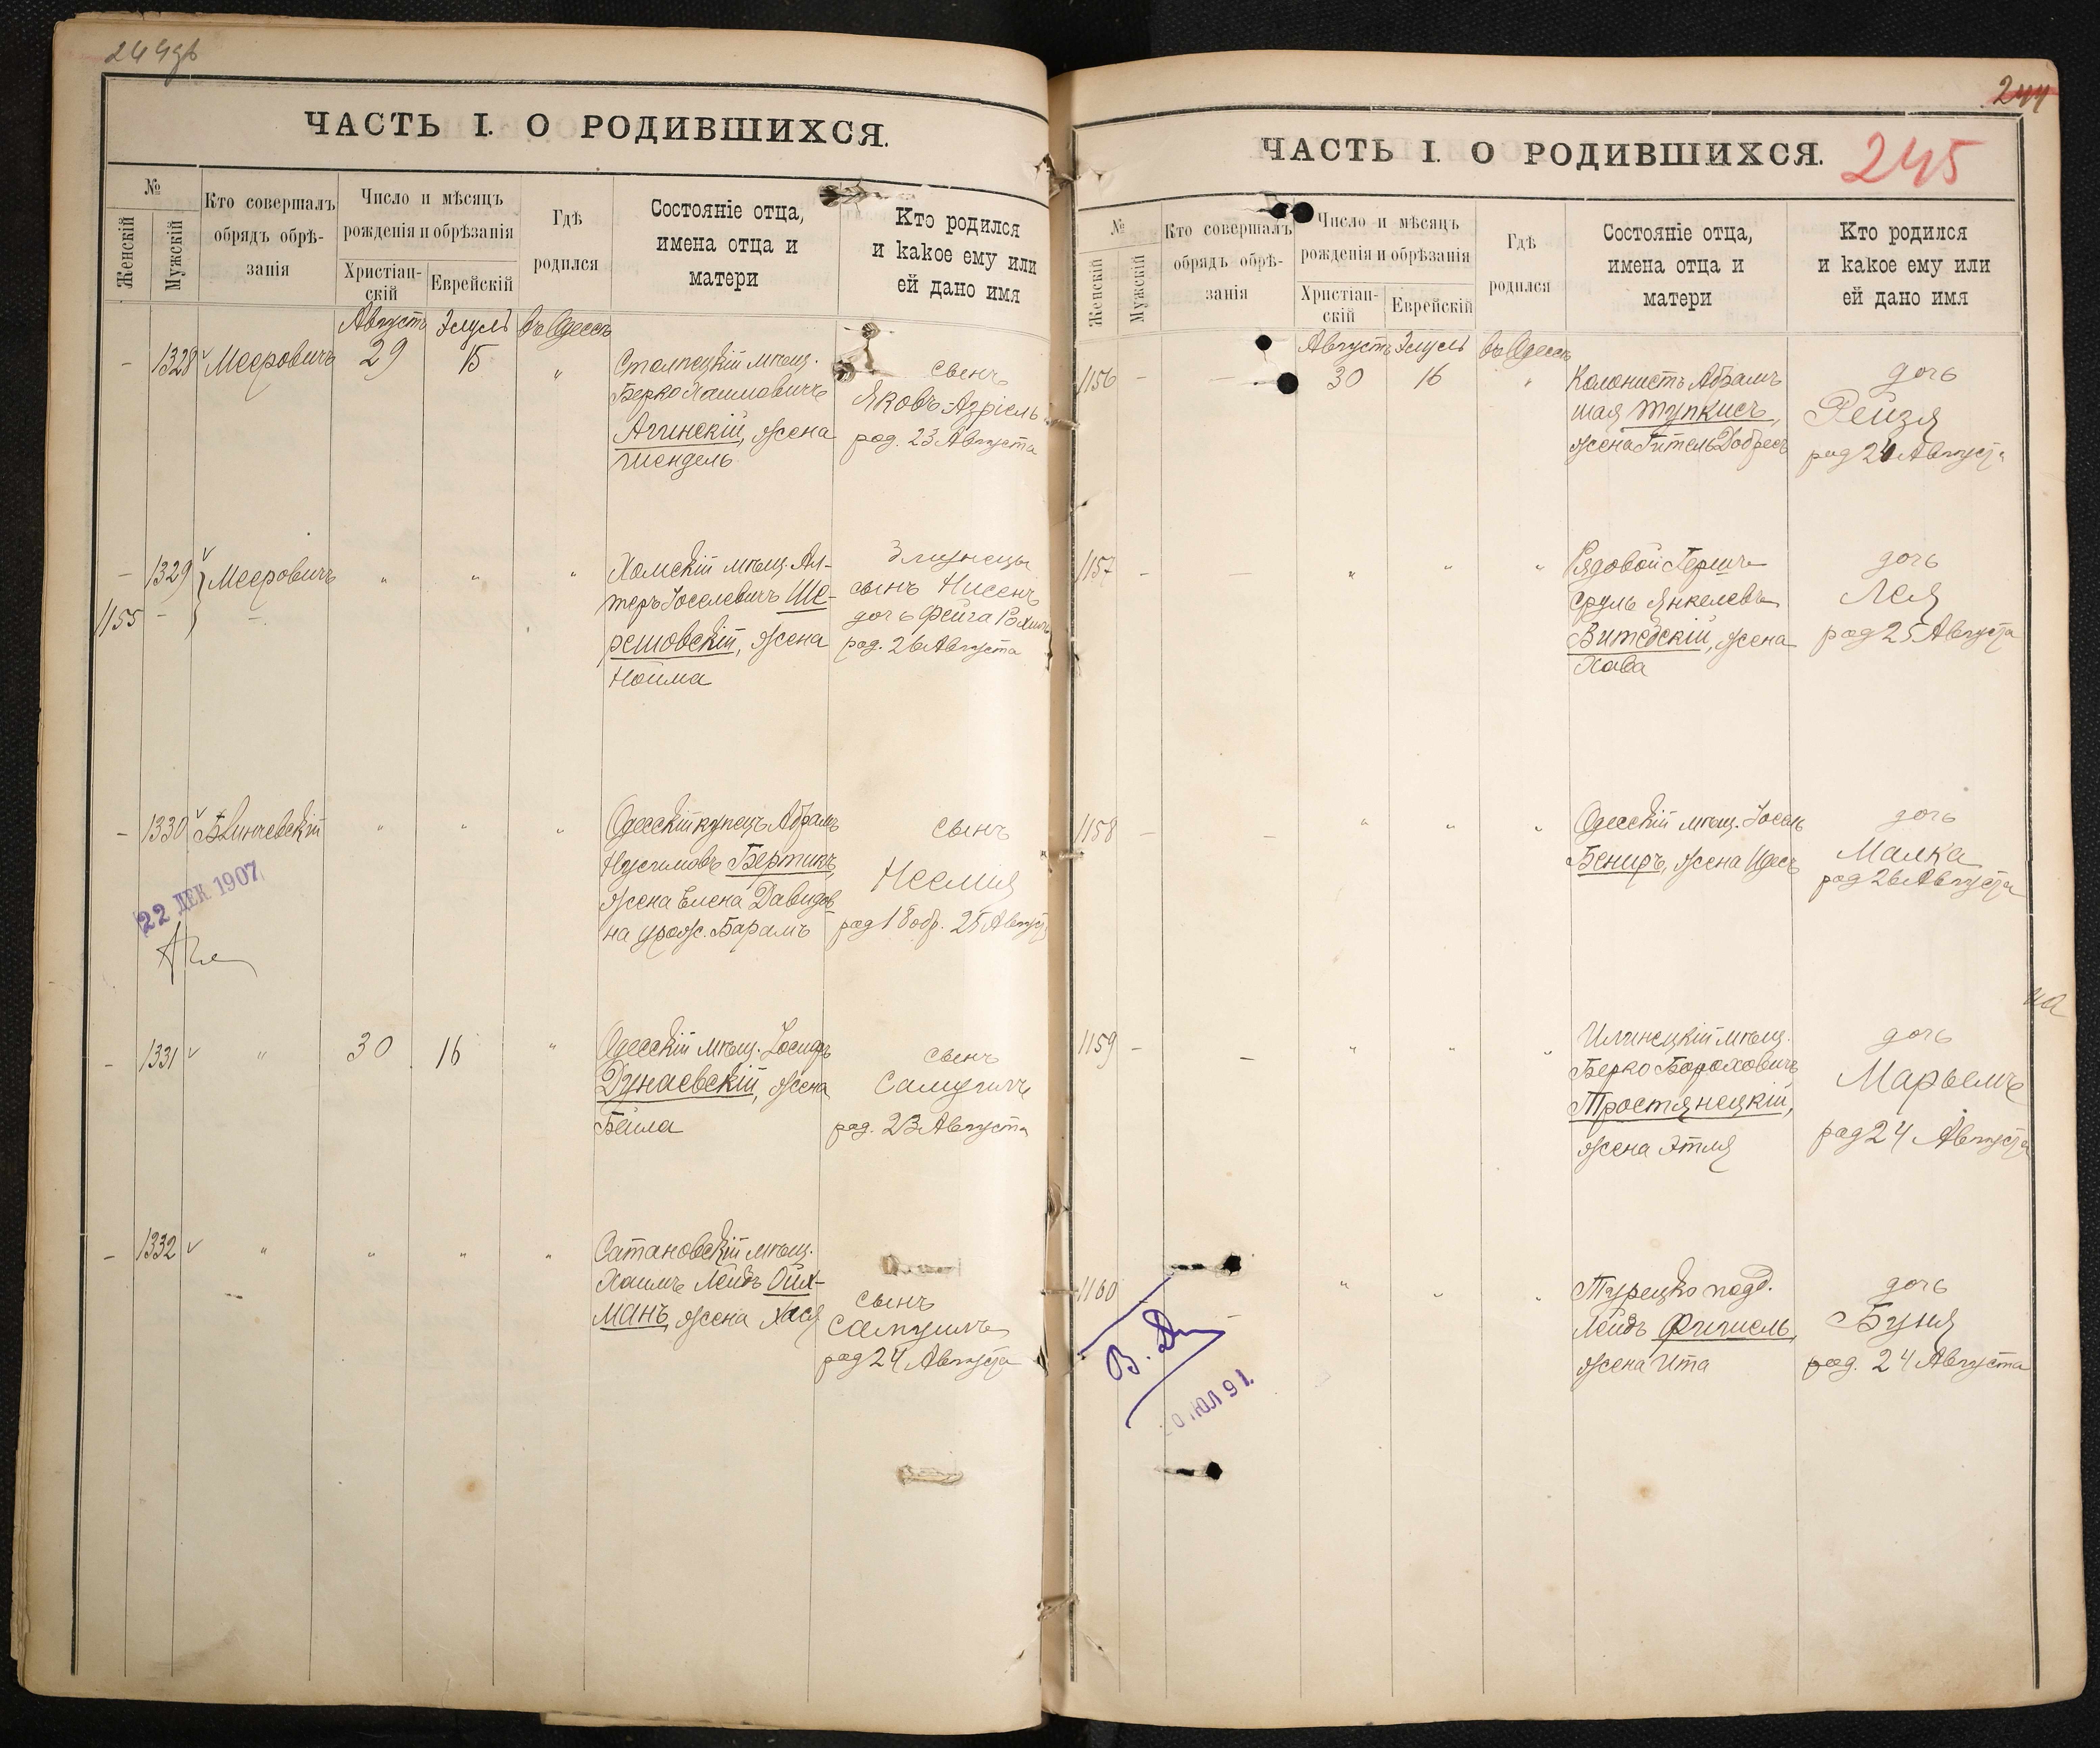 ЧАСТЬ I. О РОДИВШИХСЯ.
№
Женскій
Мужскій
Кто совершалъ
обрядъ обрѣ-
занія
Число и мѣсяцъ
рожденія и обрѣзанія
Христіан-
скій
Еврейскій
Гдѣ
родился
Состояніе отца,
имена отца и
матери
Кто родился
и какое ему или
ей дано имя
Августъ Элулъ въ Одессѣ
- 1328 Мееровичъ 29 15 "
Столпецкій мѣщ.
Берко Хаимовичъ
Агинскій, жена
Шендель
сынъ
Яковъ-Азріель
род. 23 Августа
- 1329 Мееровичъ " " "
1155 -
Холмскій мѣщ. Ал-
теръ Іоселевичъ Ше-
решовскій, жена
Ноима
Близнецы
сынъ Нисенъ
дочь Фейга
род. 26 Августа
- 1330 Блинчевскій " " "
22 ДЕК 1907
Одесскій купецъ Абрамъ
Бертинъ,
жена Елена Давидов-
на урож. Барамъ
сынъ
Неемія
род 18 обр. 25 Августа
- 1331 " 30 16 "
Одесскій мѣщ. Іосифъ
Дунаевскій, жена
Бейла
сынъ
Самуилъ
род. 23 Августа
- 1332 " " " "
Сатановскій мѣщ.
Хаимъ Лейбъ Ойх-
манъ, жена Хася
сынъ
Самуилъ
род 24 Августа
244
245
ЧАСТЬ I. О РОДИВШИХСЯ.
№
Женскій
Мужскій
Кто совершалъ
обрядъ обрѣ-
занія
Число и мѣсяцъ
рожденія и обрѣзанія
Христіан-
скій
Еврейскій
Гдѣ
родился
Состояніе отца,
имена отца и
матери
Кто родился
и какое ему или
ей дано имя
Августъ Элулъ въ Одессѣ
1156 - - 30 16 "
Колонистъ Абрамъ
жена Гитель Добресъ
дочь
Рейзя
род 24 Августа
1157 - - " " "
Рядовой Гершъ
Сруль Янкелевъ
Витебскій, жена
Хава
дочь
Лея
род 25 Августа
1158 - - " " "
Одесскій мѣщ. Іосель
Бениръ, жена Идесъ
дочь
Малка
род 26 Августа
1159 - - " " "
Илинецкій мѣщ.
Берко Бороховичъ
Тростянецкій,
жена Этля
дочь
Марьемъ
род 24 Августа
1160 - " " "
Турецко под.
Лейбъ Фишель,
жена Ита
дочь
Буня
род. 24 Августа